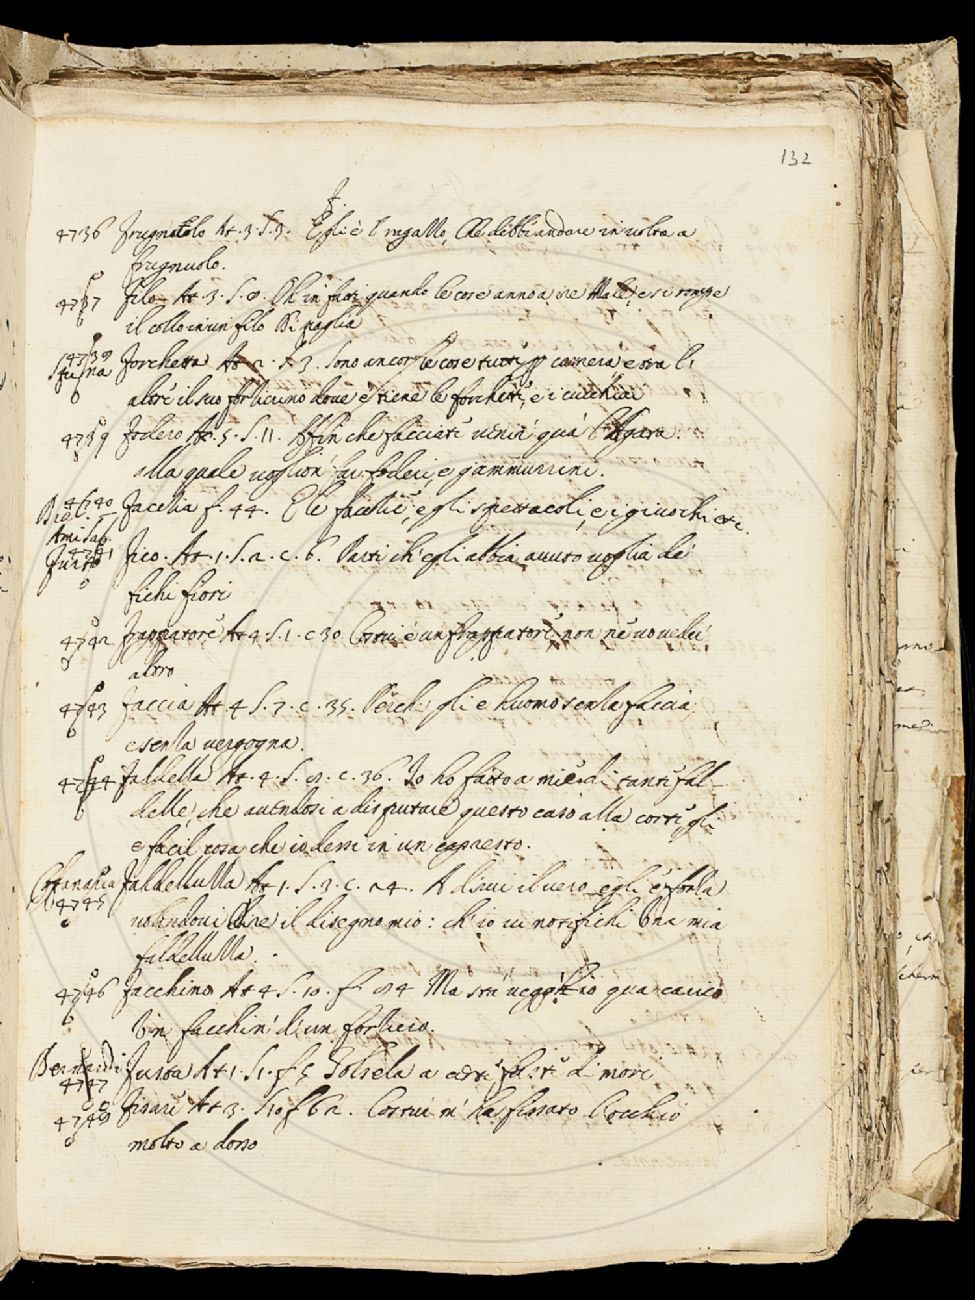 132
f.
4736 Frugnolo At. 3. S. 3. Egli è l ragallo, che debbe andare in volta a
frugnuolo.
4737 filo At. 3. S. 8. Oh in fatti quando le cose anno a ire Male, e si rompe
il collo in un filo di paglia
4738 Forchetta At. 2. S. 3. sono ancor le cose tutte camera e
altri il suo dove e tiene le forchette, e i cucchiai
4739 Fodero At. 5. S. 11. Affin che facciate venir quà l'Agata.
alla quale voglion far foderi, e gammurrini.
4740 Facelia f. 44. E le facelie, e gli spettacoli, e i giuochi etc.
4741 Fico. At. 1. S. 2. c. 6. Fatti ch'egli abbia avuto voglia de
fichi fiori
4742 Frappatore At 4 S. 1. c 30 Costui è un frappatore, non ne vo veder
altro
4743 Faccia At. 4 S. 7. c. 35. Perche gli e huomo senza faccia,
e senza vergogna.
4744 Faldella At. 4. S. 8. c. 36. Io ho fatto a miei dì tante fal-
delle, che avendosi a disputare questo caso alla corte gli
e facil cosa che io dessi in un capresto.
4745 Faldelluzza At 1. S. 3. c. 24. A dirne il vero egli è forza
volendovi dire il disegno mio: ch'io vi notifichi una mia
faldelluzza.
4746 Facchino At 4 S. 10. f. 84 Ma s'io veggio qua carico
Un facchin' di un forziero.
Bernardi
4747 At 1. S1. f 5 a di mori
At 3. S10 f 62. Costui m' ha ficcato l'occhio
molto a dosso